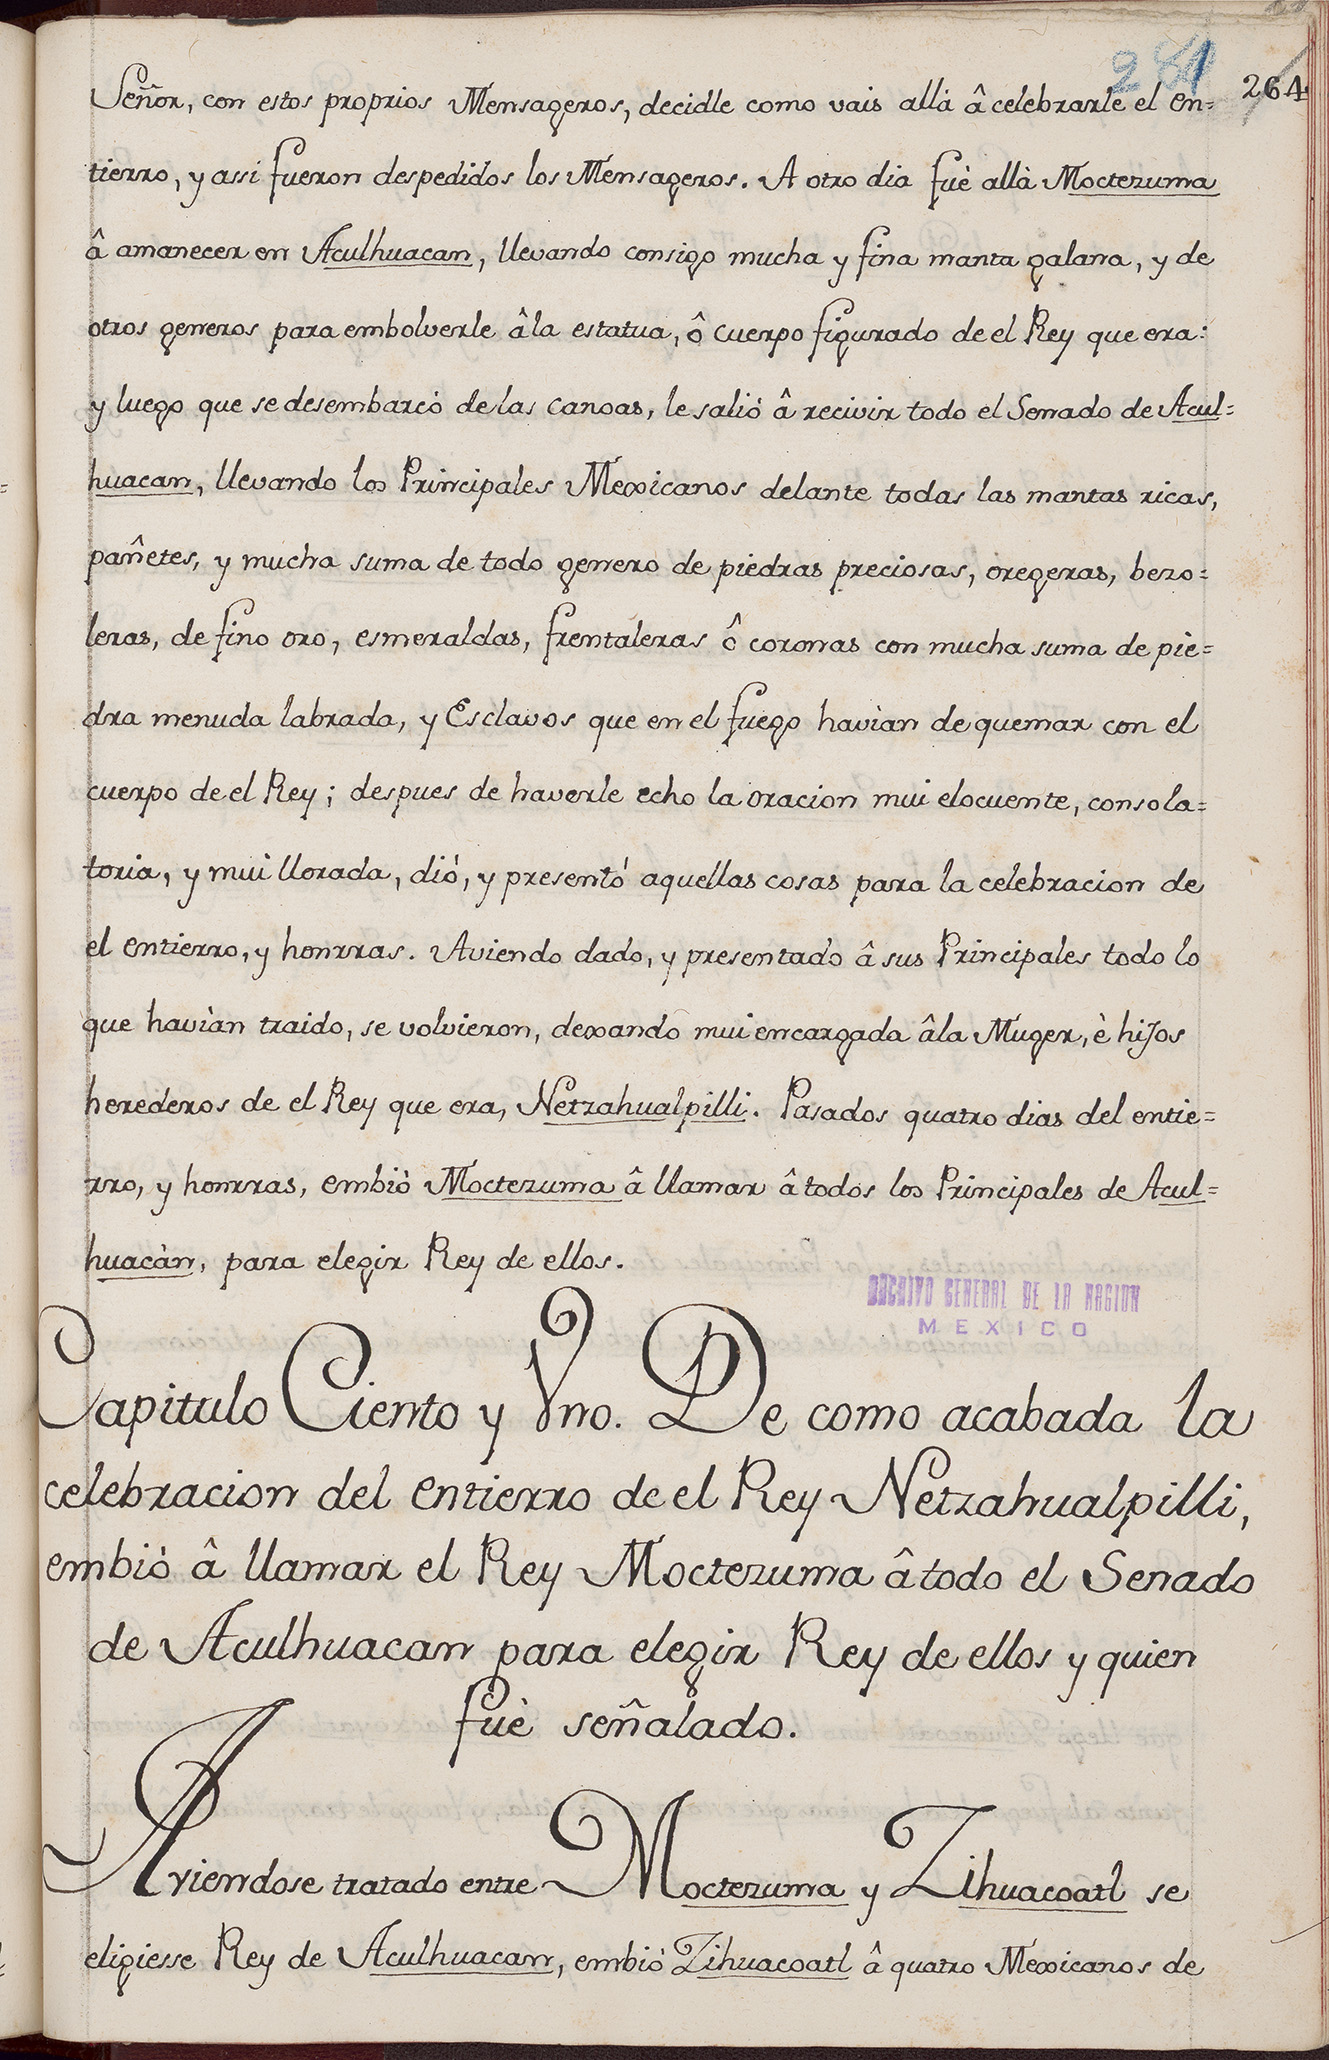 281 264
Señor, con estos proprios Mensageros, decidle como vais allà â celebrarle el en=
tierro, y assi fueron despedidos los Mensageros. A otro dia fuè allà Moctezuma
â amanecer en Aculhuacan, llevando consigo mucha y fina manta galana, y de
otros generos para embolverle âla estatua, ô cuerpo figurado de el Rey que era:
y luego que se desembarcò de las canoas, le saliò â recivir todo el Senado de Acul=
huacan, llevando los Principales Mexicanos delante todas las mantas ricas,
pañetes, y mucha suma de todo genero de piedras preciosas, oregeras, bezo=
leras, de fino oro, esmeraldas, frentaleras ô coronas con mucha suma de pie=
dra menuda labrada, y Esclavos que en el fuego havìan de quemar con el
cuerpo de el Rey; despues de haverle echo la oracion mui elocuente, consola=
toria, y mui llorada, diò, y presentò aquellas cosas para la celebracion de
el entierro, y honrras. Aviendo dado, y presentado â sus Principales todo lo
que havìan traido, se volvieron, dexando mui encargada âla Muger, è hijos
herederos de el Rey que era, Netzahualpilli. Pasados quatro dias del entie=
rro, y honrras, embiò Moctezuma â llamar â todos los Principales de Acul=
huacàn, para elegir Rey de ellos.
ARCHIVO GENERAL DE LA NACION
MEXICO
Capitulo Ciento y Vno. De como acabada la
celebracion del entierro de el Rey Netzahualpilli,
embiò â llamar el Rey Moctezuma â todo el Senado
de Aculhuacan para elegir Rey de ellos y quien
fuè señalado.
Aviendose tratado entre Moctezuma y Zihuacoatl se
eligiesse Rey de Aculhuacan, embiò Zihuacoatl â quatro Mexicanos de